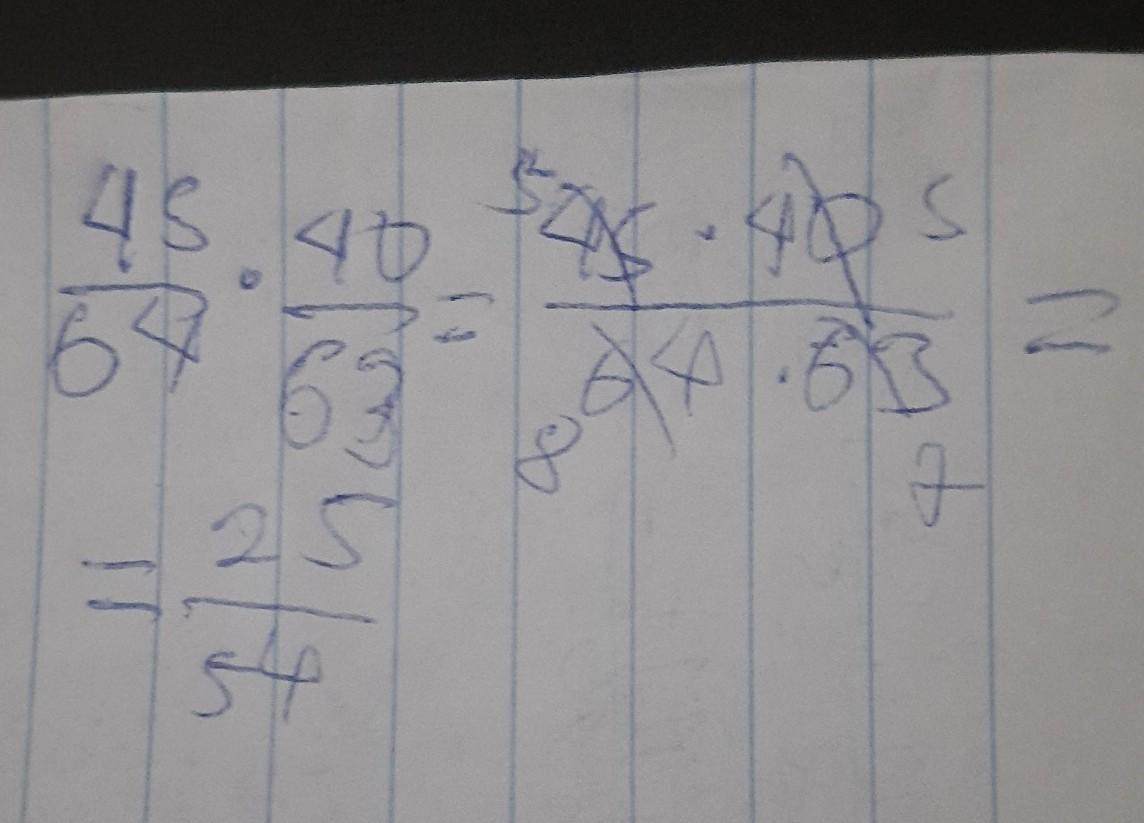 45/64 · 40/63 = 5 45 · 40 5 / 8 64 · 63 7 =
= 25/54